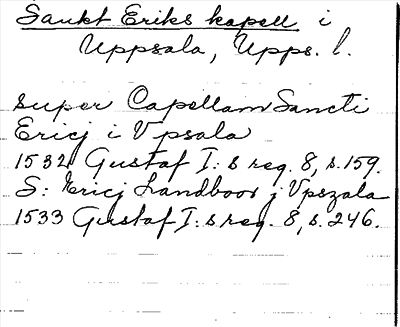 Sankt Eriks kapell i
Uppsala, Upps. l.
super Capellam Sancti
Ericj i Vpsala
1532 Gustaf I:s reg. 8, s. 159.
S: Ericj Landboor j Vpszala
1533 Gustaf I:s reg. 8, s. 246.